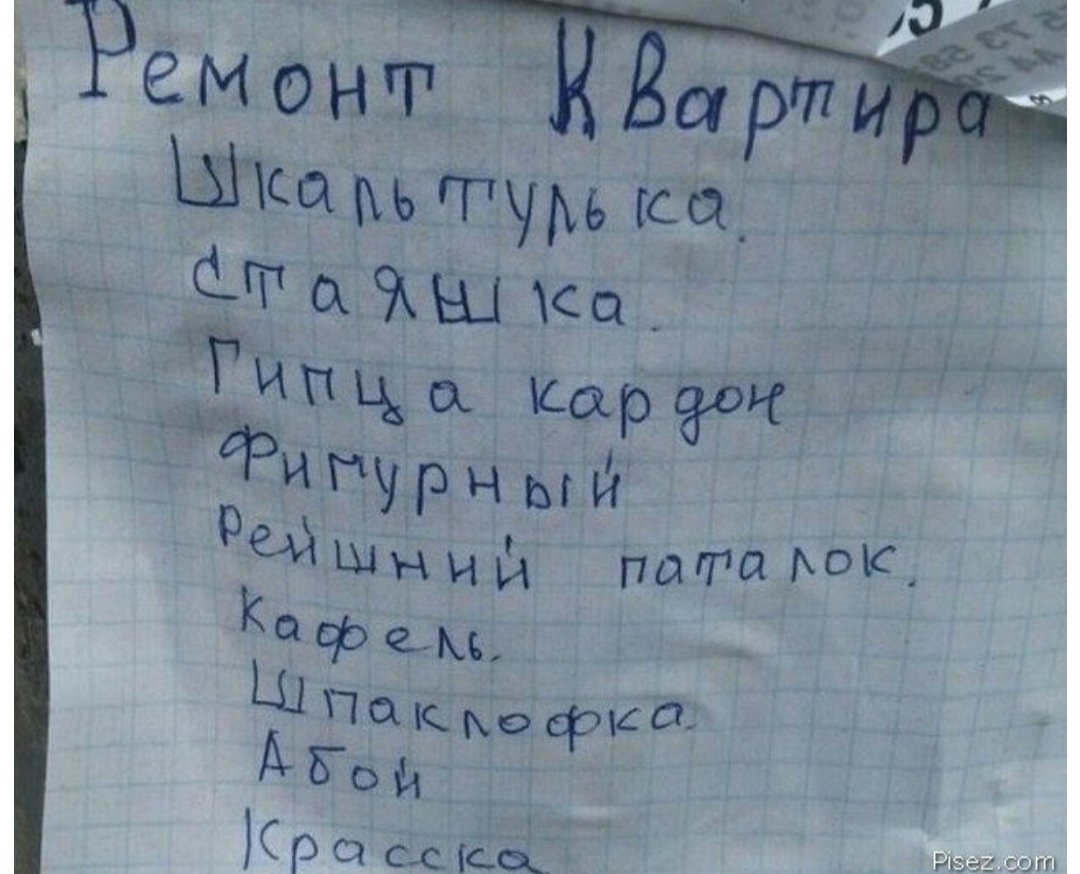 Ремонт Квартира
Шкальтулька.
Стаяшка.
Гипца кардон
Фигурный
Рейшний паталок.
Кафель.
Шпаклофка.
Абой
Красска
Pisez.com